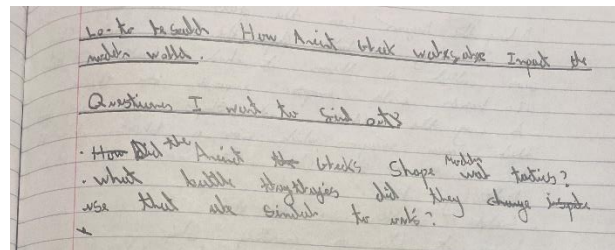 Lo- to research How Anint Greek warfare Impact the
modern world.
Questions I want to find out?
· How Did the Anient the Greeks Shape Modern war tactics?
· what battle did they change inspire
use that are similar to ?